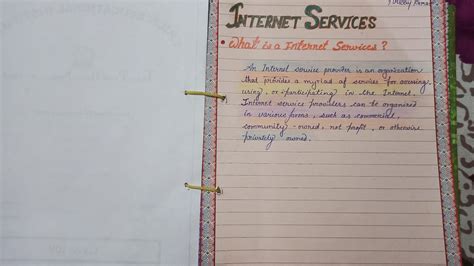 INTERNET SERVICES
• What is a Internet Services?
An Internet service provider is an organization
that provides a myriad of services for accessing,
using, or participating in the Internet.
Internet service providers can be organized
in various forms, such as commercial,
community-owned, not profit, or otherwise
privately owned.